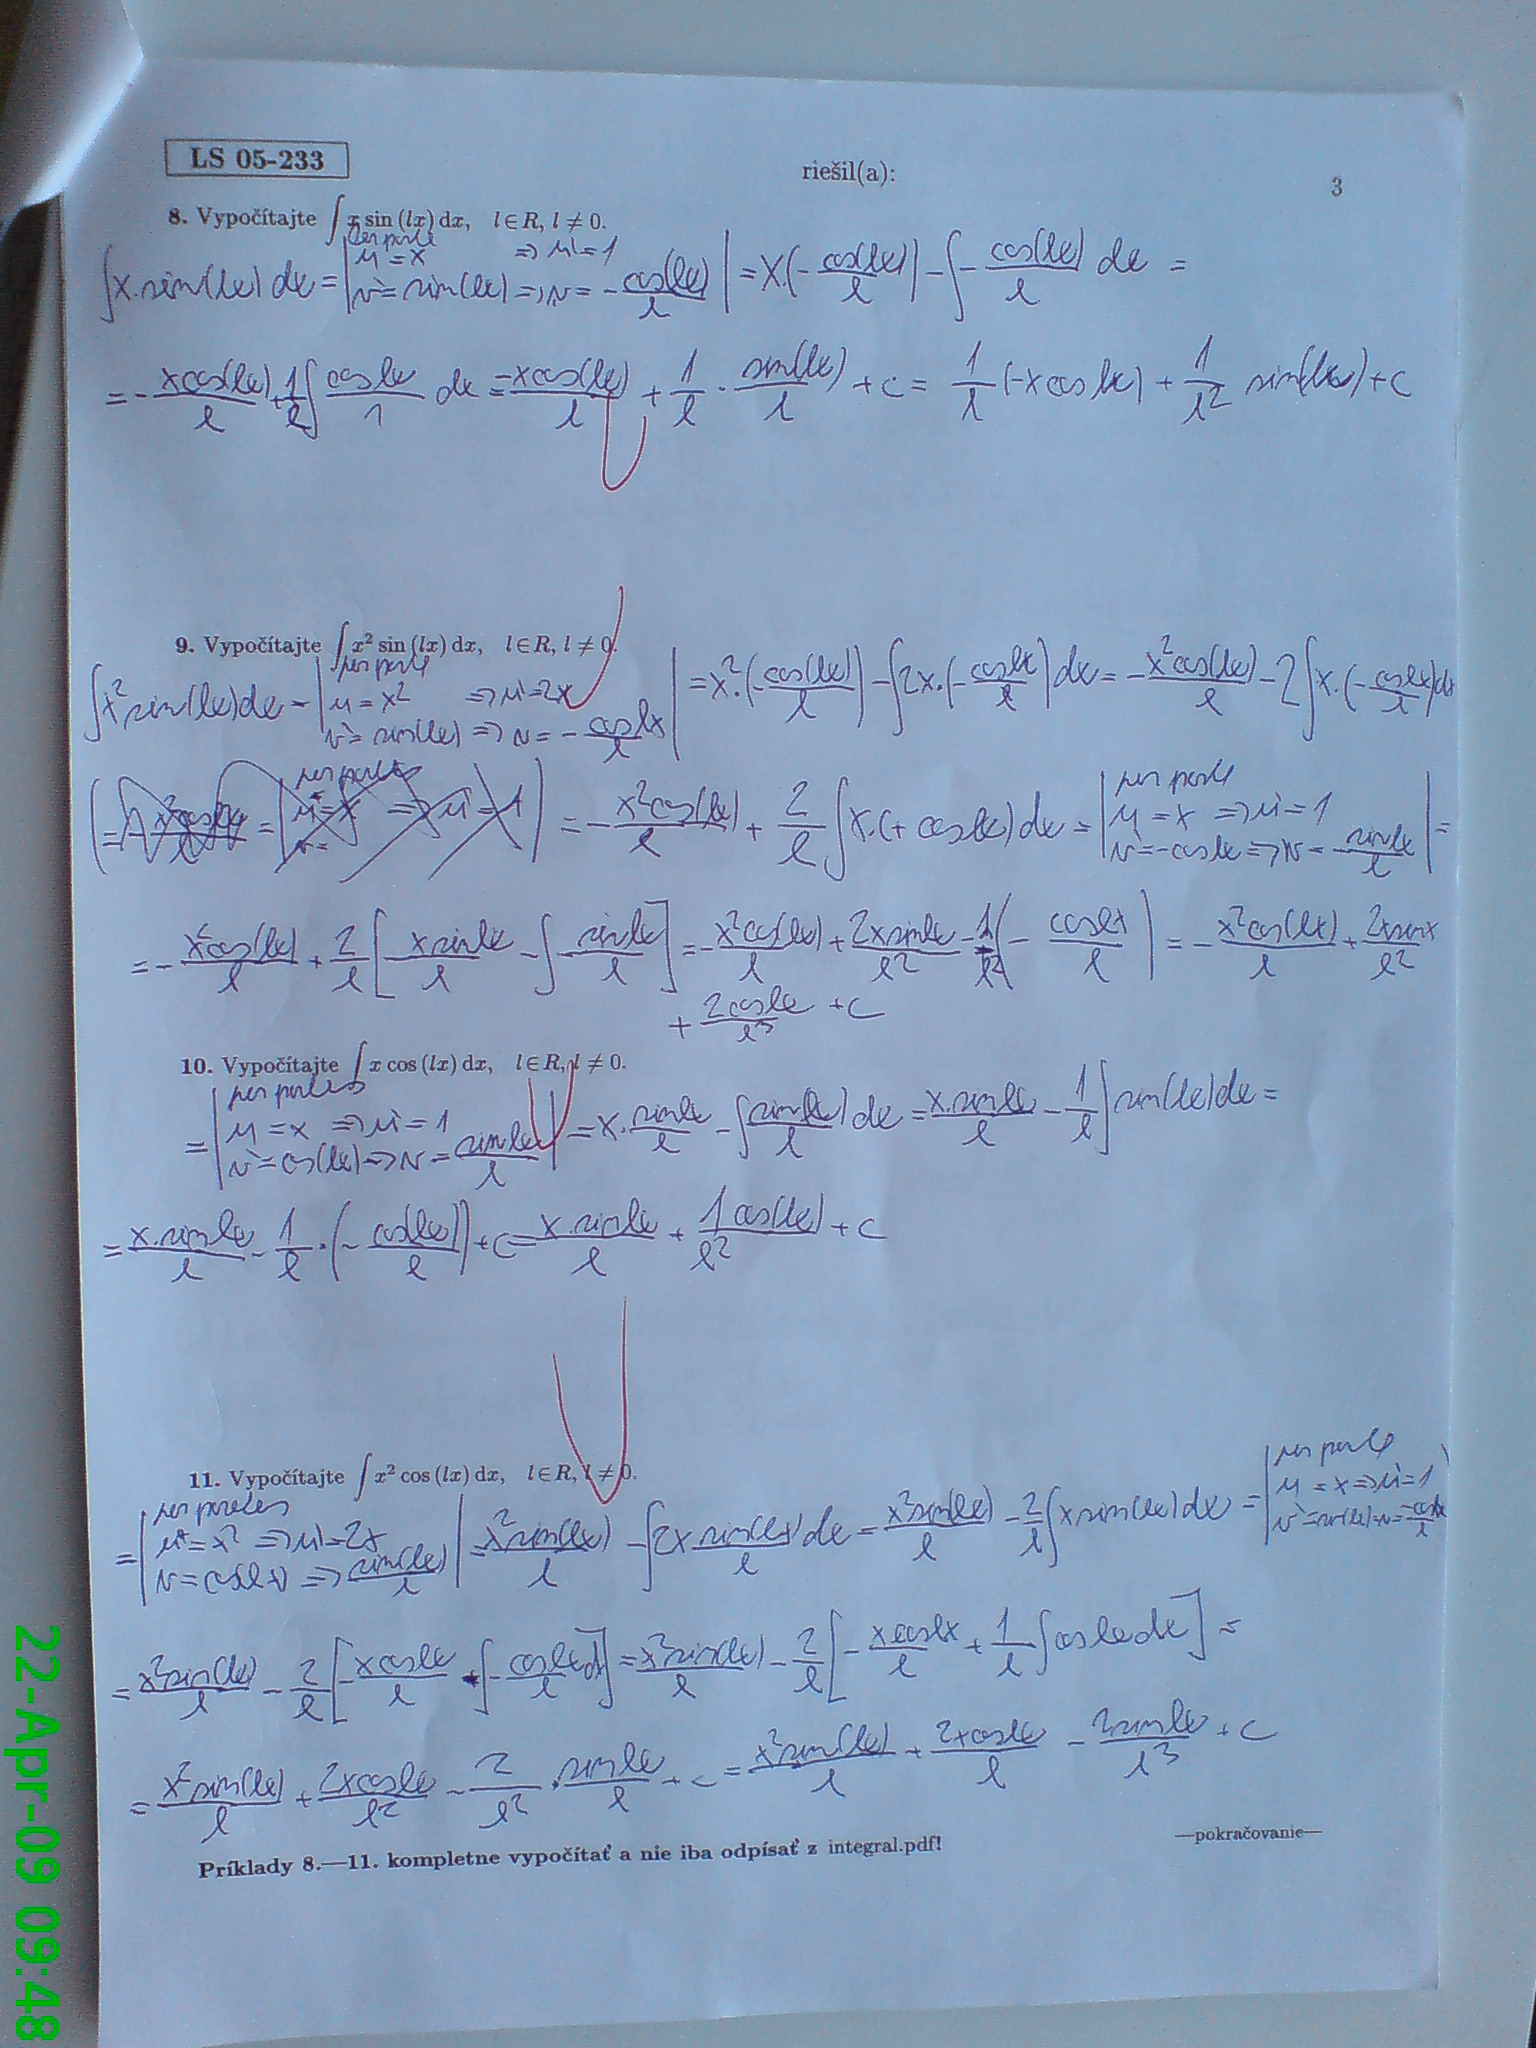 LS 05-233
riešil(a):
3
8. Vypočítajte ∫ x sin (lx) dx, l ∈ R, l ≠ 0.
per parte
∫x.sin(lx) dx = | u = x ⇒ u' = 1
v' = sin(lx) ⇒ v = -cos(lx)/l | = x.(-cos(lx)/l) - ∫ -cos(lx)/l dx =
= -xcos(lx)/l + 1/l ∫ coslx/1 dx = -xcos(lx)/l + 1/l · sin(lx)/l + c = 1/l (-xcoslx) + 1/l² sin(lx) + c
9. Vypočítajte ∫ x² sin (lx) dx, l ∈ R, l ≠ 0.
per parte
∫x² sin(lx) dx = | u = x² ⇒ u' = 2x
v' = sin(lx) ⇒ v = -coslx/l | = x².(-cos(lx)/l) - ∫2x.(-coslx/l) dx = -x²cos(lx)/l - 2∫x.(-coslx/l) dx
= -x²cos(lx)/l + 2/l ∫x.(+coslx) dx = | per parte
u = x ⇒ u' = 1
v' = -coslx ⇒ v = -sinlx/l | =
= -x²cos(lx)/l + 2/l [xsinlx/l - ∫ sinlx/l] = -x²cos(lx)/l + 2xsinlx/l² - (-coslx/l) = -x²cos(lx)/l + 2xsinx/l²
+ 2coslx/l³ + c
10. Vypočítajte ∫ x cos (lx) dx, l ∈ R, l ≠ 0.
per partes
= | u = x ⇒ u' = 1
v' = cos(lx) ⇒ v = sinlx/l | = x.sinlx/l - ∫ sin(lx)/l dx = x.sinlx/l - 1/l ∫ sin(lx) dx =
= x.sinlx/l - 1/l · (-cos(lx)/l) + c = x.sinlx/l + 1cos(lx)/l² + c
11. Vypočítajte ∫ x² cos (lx) dx, l ∈ R, l ≠ 0.
per partes
= | u = x² ⇒ u' = 2x
v = cos(lx) ⇒ sin(lx)/l | = x²sin(lx)/l - ∫2x sin(lx)/l dx = x²sin(lx)/l - 2/l ∫x sin(lx) dx = | per parte
u = x ⇒ u' = 1
v' = sin(lx) ⇒ v = -coslx/l
= x²sin(lx)/l - 2/l [-xcoslx/l - ∫ -coslx/l dx] = x²sin(lx)/l - 2/l [-xcoslx/l + 1/l ∫ coslx dx] =
= x²sin(lx)/l + 2xcoslx/l² - 2/l² · sinlx/l + c = x²sin(lx)/l + 2xcoslx/l - 2sinlx/l³ + c
Príklady 8.—11. kompletne vypočítať a nie iba odpísať z integral.pdf!
—pokračovanie—
22-Apr-09 09:48